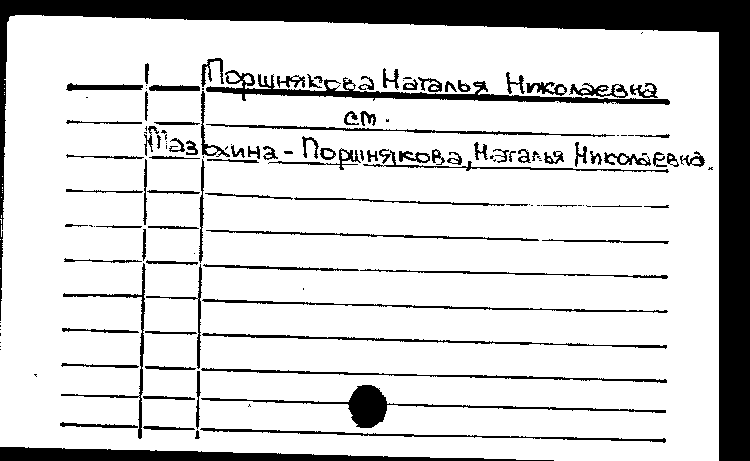 Поршнякова Наталья Николаевна
см.
Мазюхина - Поршнякова, Наталья Николаевна.